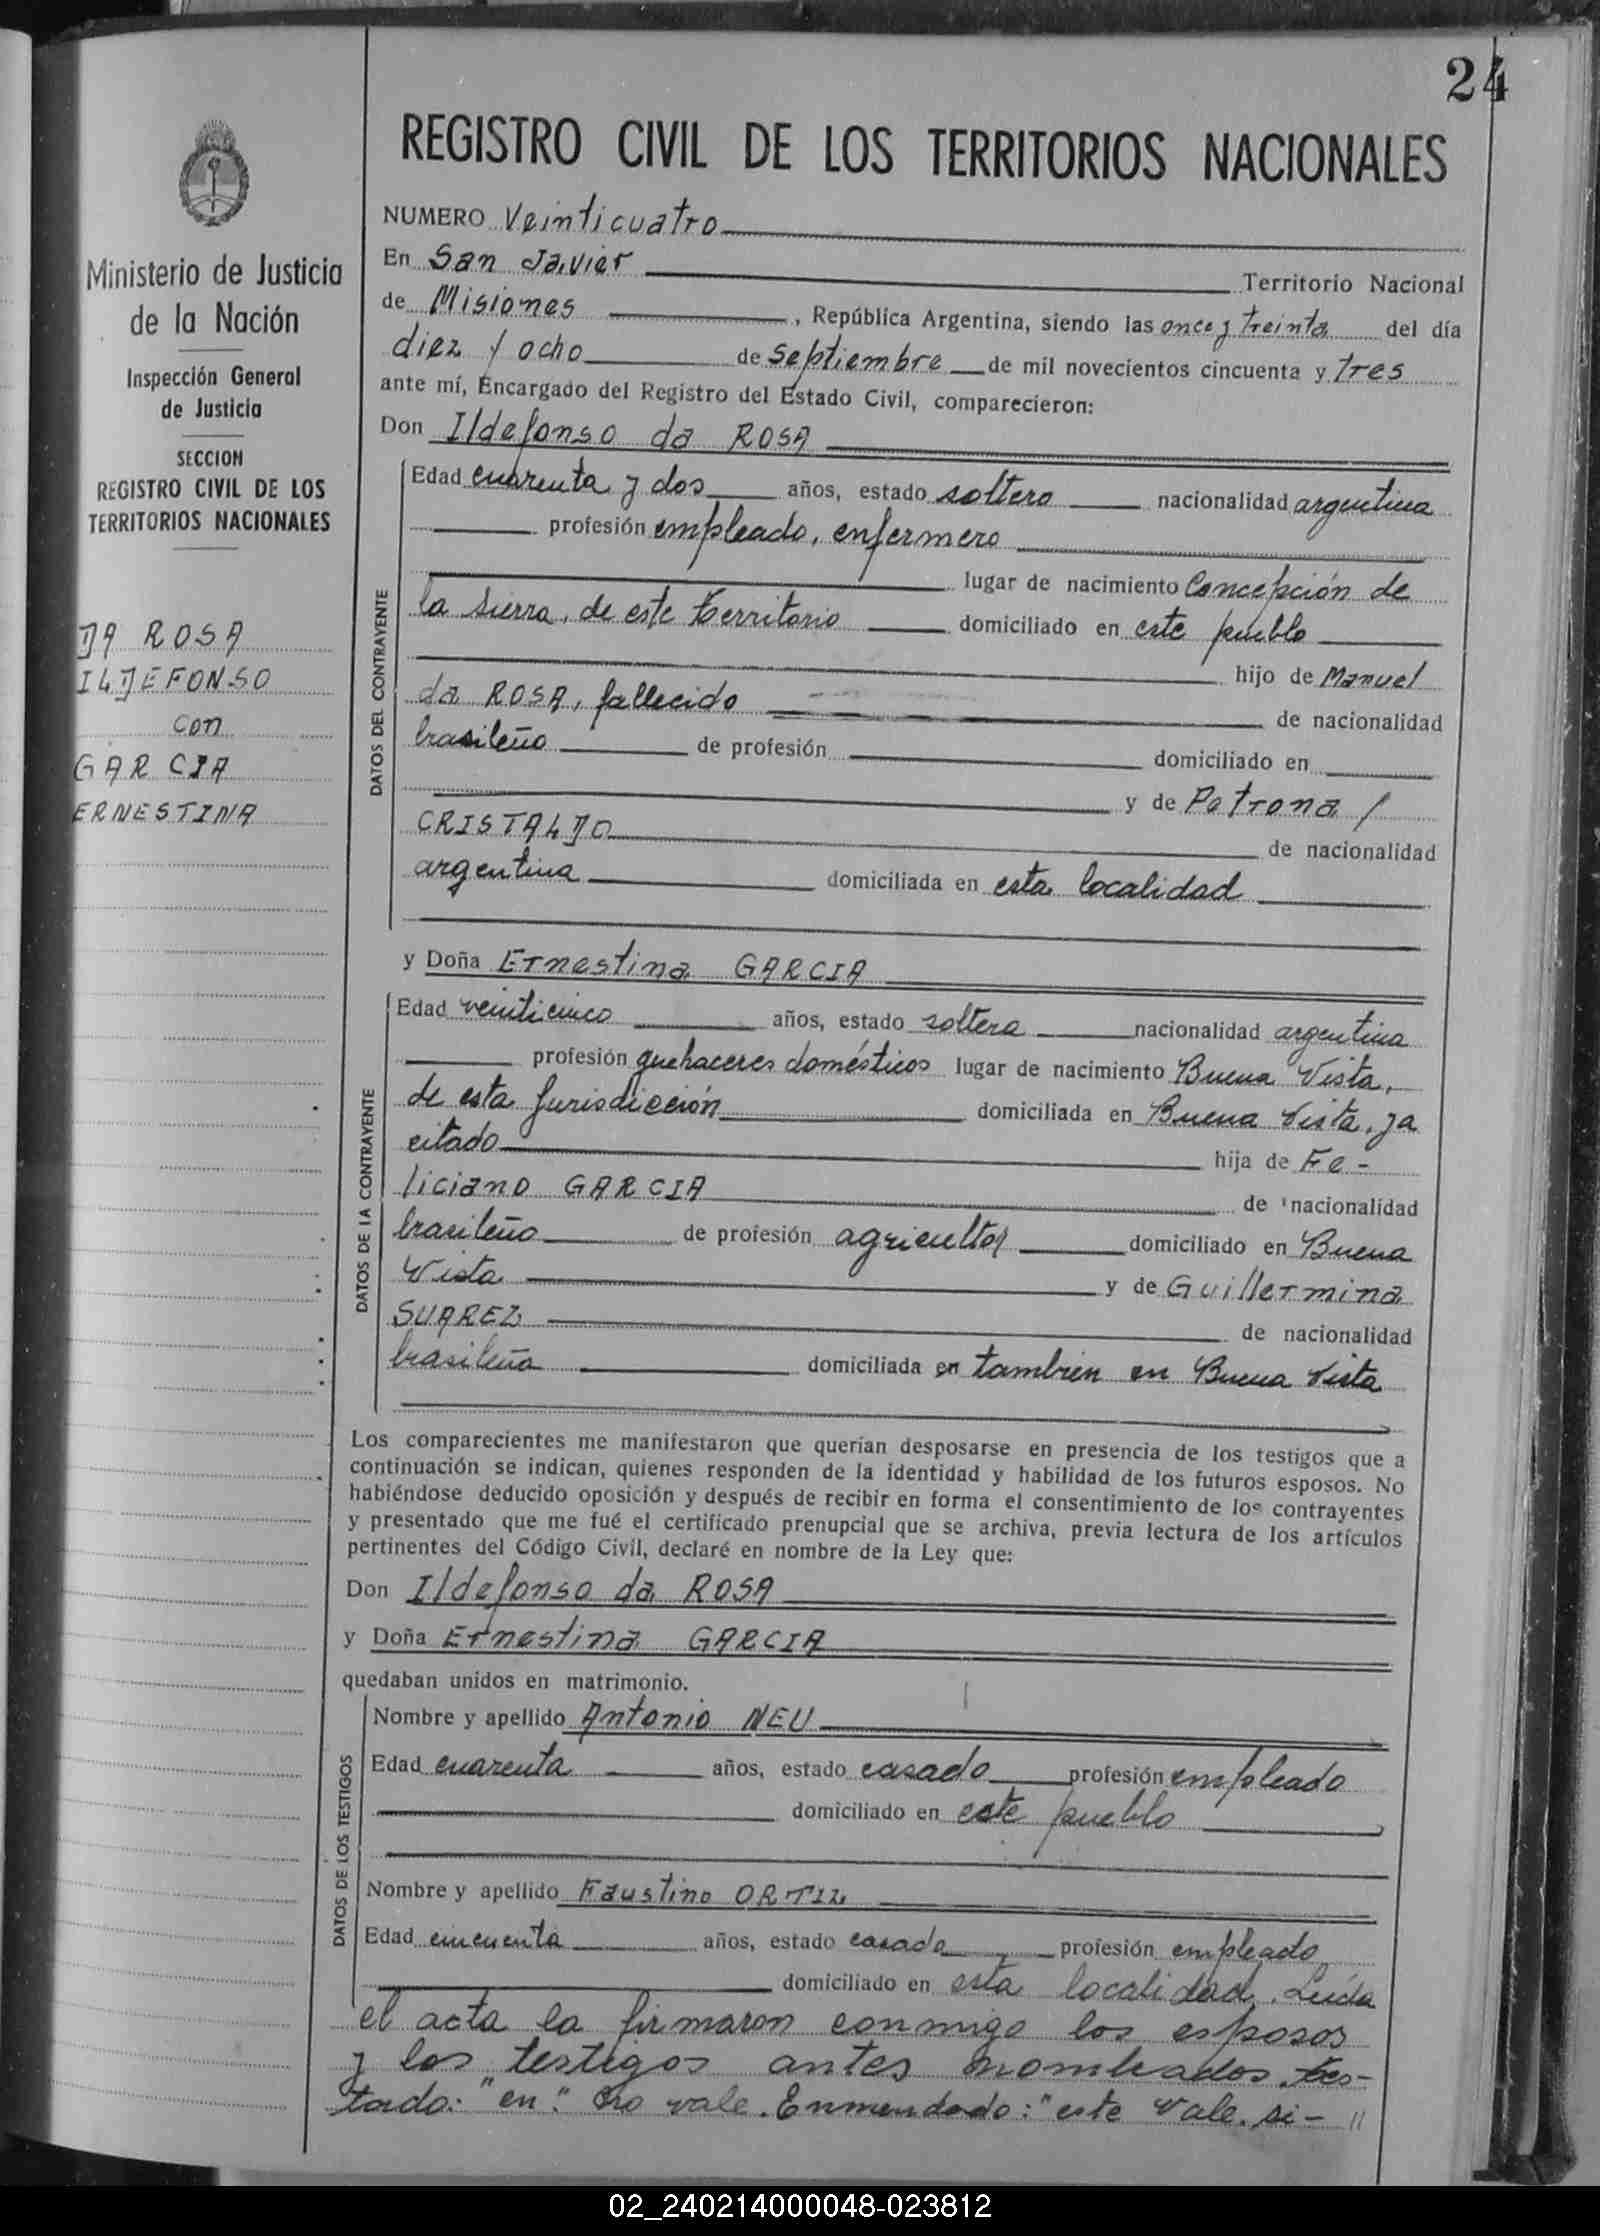 24
REGISTRO CIVIL DE LOS TERRITORIOS NACIONALES
Ministerio de Justicia
de la Nación
Inspección General
de Justicia
SECCION
REGISTRO CIVIL DE LOS
TERRITORIOS NACIONALES
DA ROSA
ILDEFONSO
con
GARCIA
ERNESTINA
NUMERO Veinticuatro
En San Javier Territorio Nacional
de Misiones , República Argentina, siendo las once y treinta del día
diez y ocho de Septiembre de mil novecientos cincuenta y tres
ante mí, Encargado del Registro del Estado Civil, comparecieron:
Don Ildefonso da ROSA
DATOS DEL CONTRAYENTE
Edad cuarenta y dos años, estado soltero nacionalidad argentina
profesión empleado, enfermero
lugar de nacimiento Concepción de
la Sierra, de este territorio domiciliado en este pueblo
hijo de Manuel
da ROSA, fallecido de nacionalidad
brasileño de profesión domiciliado en
y de Petrona /
CRISTALDO de nacionalidad
argentina domiciliada en esta localidad
y Doña Ernestina GARCIA
DATOS DE LA CONTRAYENTE
Edad veinticinco años, estado soltera nacionalidad argentina
profesión quehaceres domésticos lugar de nacimiento Buena Vista,
de esta jurisdicción domiciliada en Buena Vista, ya
citado hija de Fe-
liciano GARCIA de nacionalidad
brasileño de profesión agricultor domiciliado en Buena
Vista y de Guillermina
SUAREZ de nacionalidad
brasileña domiciliada en también en Buena Vista
Los comparecientes me manifestaron que querían desposarse en presencia de los testigos que a
continuación se indican, quienes responden de la identidad y habilidad de los futuros esposos. No
habiéndose deducido oposición y después de recibir en forma el consentimiento de los contrayentes
y presentado que me fué el certificado prenupcial que se archiva, previa lectura de los artículos
pertinentes del Código Civil, declaré en nombre de la Ley que:
Don Ildefonso da ROSA
y Doña Ernestina GARCIA
quedaban unidos en matrimonio.
DATOS DE LOS TESTIGOS
Nombre y apellido Antonio NEU
Edad cuarenta años, estado casado profesión empleado
domiciliado en este pueblo
Nombre y apellido Faustino ORTIZ
Edad cincuenta años, estado casado profesión empleado
domiciliado en esta localidad. Leída
el acta la firmaron conmigo los esposos
y los testigos antes nombrados. Tes-
tado: "en": no vale. Enmendado: "este vale. si- "
02_240214000048-023812